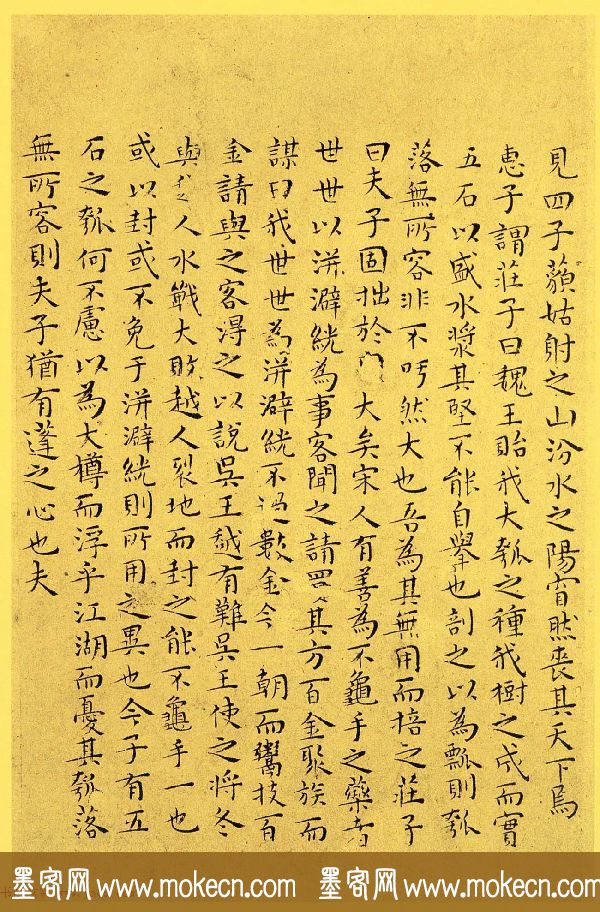 見四子藐姑射之山汾水之陽窅然喪其天下焉
惠子謂莊子曰魏王貽我大瓠之種我樹之成而實
五石以盛水漿其堅不能自舉也剖之以為瓢則瓠
落無所容非不呺然大也吾為其無用而掊之莊子
曰夫子固拙於 大矣宋人有善為不龜手之藥者
世世以洴澼絖為事客聞之請買其方百金聚族而
謀曰我世世為洴澼絖不過數金今一朝而鬻技百
金請與之客得之以說吳王越有難吳王使之將冬
與越人水戰大敗越人裂地而封之能不龜手一也
或以封或不免于洴澼絖則所用之異也今子有五
石之瓠何不慮以為大樽而浮乎江湖而憂其瓠落
無所容則夫子猶有蓬之心也夫
墨客网 www.mokecn.com 墨客网 www.mokecn.com